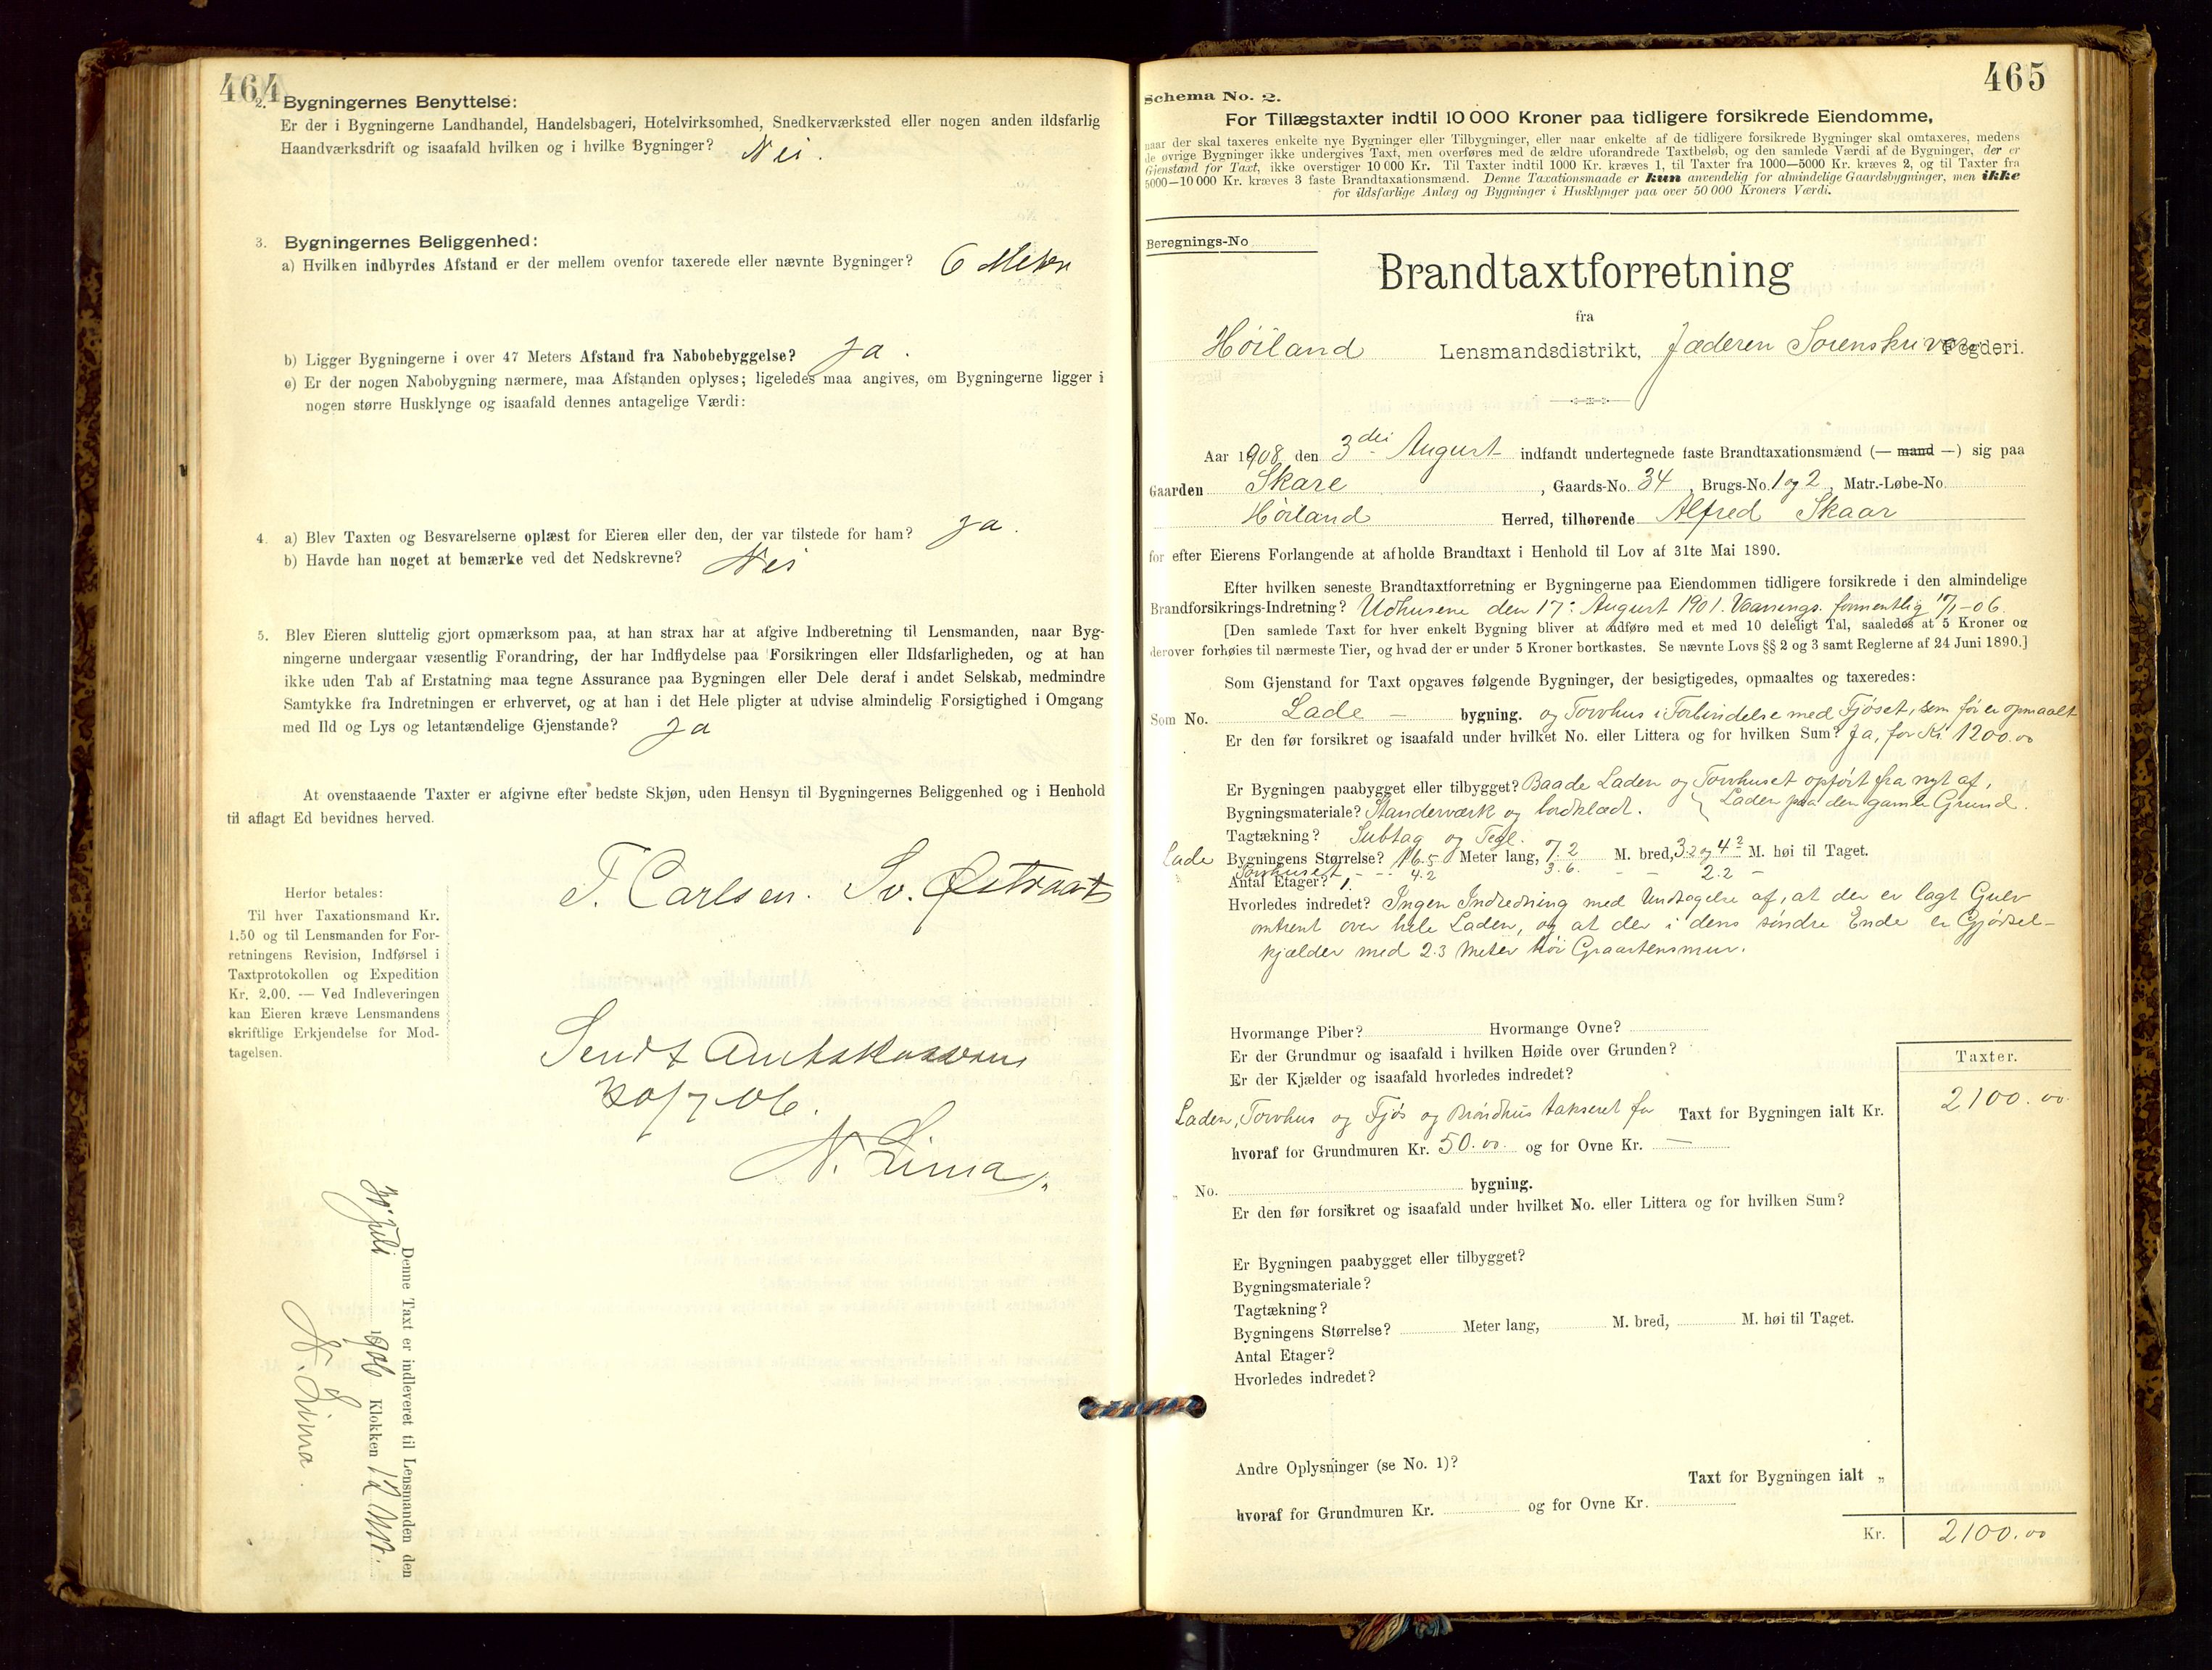 464
2. Bygningernes Benyttelse:
Er der i Bygningerne Landhandel, Handelsbageri, Hotelvirksomhed, Snedkerværksted eller nogen anden ildsfarlig
Haandværksdrift og isaafald hvilken og i hvilke Bygninger? Nei.
3. Bygningernes Beliggenhed:
a) Hvilken indbyrdes Afstand er der mellem ovenfor taxerede eller nævnte Bygninger? 6 Meter
b) Ligger Bygningerne i over 47 Meters Afstand fra Nabobebyggelse? Ja.
c) Er der nogen Nabobygning nærmere, maa Afstanden oplyses; ligeledes maa angives, om Bygningerne ligger i
nogen større Husklynge og isaafald dennes antagelige Værdi:
4. a) Blev Taxten og Besvarelserne oplæst for Eieren eller den, der var tilstede for ham? Ja.
b) Havde han noget at bemærke ved det Nedskrevne? Nei
5. Blev Eieren sluttelig gjort opmærksom paa, at han strax har at afgive Indberetning til Lensmanden, naar Byg-
ningerne undergaar væsentlig Forandring, der har Indflydelse paa Forsikringen eller Ildsfarligheden, og at han
ikke uden Tab af Erstatning maa tegne Assurance paa Bygningen eller Dele deraf i andet Selskab, medmindre
Samtykke fra Indretningen er erhvervet, og at han i det Hele pligter at udvise almindelig Forsigtighed i Omgang
med Ild og Lys og letantændelige Gjenstande? Ja
At ovenstaaende Taxter er afgivne efter bedste Skjøn, uden Hensyn til Bygningernes Beliggenhed og i Henhold
til aflagt Ed bevidnes herved.
T. Carlsen. Sv. Østraat
Herfor betales:
Til hver Taxationsmand Kr.
1.50 og til Lensmanden for For-
retningens Revision, Indførsel i
Taxtprotokollen og Expedition
Kr. 2.00. — Ved Indleveringen
kan Eieren kræve Lensmandens
skriftlige Erkjendelse for Mod-
tagelsen.
Sendt Amtskassereren
30/7 06.
N. Lima.
Denne Taxt er indleveret til Lensmanden den
30. juli 1906 Klokken 12 Mdt.
N. Lima.
465
Schema No. 2.
For Tillægstaxter indtil 10 000 Kroner paa tidligere forsikrede Eiendomme,
naar der skal taxeres enkelte nye Bygninger eller Tilbygninger, eller naar enkelte af de tidligere forsikrede Bygninger skal omtaxeres, medens
de øvrige Bygninger ikke undergives Taxt, men overføres med de ældre uforandrede Taxtbeløb, og den samlede Værdi af de Bygninger, der er
Gjenstand for Taxt, ikke overstiger 10 000 Kr. Til Taxter indtil 1000 Kr. kræves 1, til Taxter fra 1000—5000 Kr. kræves 2, og til Taxter fra
5000—10 000 Kr. kræves 3 faste Brandtaxationsmænd. Denne Taxationsmaade er kun anvendelig for almindelige Gaardsbygninger, men ikke
for ildsfarlige Anlæg og Bygninger i Husklynger paa over 50 000 Kroners Værdi.
Beregnings-No
Brandtaxtforretning
fra
Høiland Lensmandsdistrikt, Jæderen Sorenskriveri Fogderi.
Aar 1908 den 3die August indfandt undertegnede faste Brandtaxationsmænd (— mand —) sig paa
Gaarden Skare, Gaards-No. 34, Brugs-No. 1 og 2, Matr.-Løbe-No.
Høiland Herred, tilhørende Alfred Skaar
for efter Eierens Forlangende at afholde Brandtaxt i Henhold til Lov af 31te Mai 1890.
Efter hvilken seneste Brandtaxtforretning er Bygningerne paa Eiendommen tidligere forsikrede i den almindelige
Brandforsikrings-Indretning? Udhusene den 17: August 1901. Vaanings. formentlig 17/1-06.
[Den samlede Taxt for hver enkelt Bygning bliver at udføre med et med 10 deleligt Tal, saaledes at 5 Kroner og
derover forhøies til nærmeste Tier, og hvad der er under 5 Kroner bortkastes. Se nævnte Lovs §§ 2 og 3 samt Reglerne af 24 Juni 1890.]
Som Gjenstand for Taxt opgaves følgende Bygninger, der besigtigedes, opmaaltes og taxeredes:
Som No. Lade – bygning. og Torvhus i Forbindelse med Fjøset, som før er opmaalt
Er den før forsikret og isaafald under hvilket No. eller Littera og for hvilken Sum? Ja, for Kr. 1200.00
Er Bygningen paabygget eller tilbygget? Baade Laden og Torvhuset opført fra nyt af,
Bygningsmateriale? Standerværk og bordklædt. Laden paa den gamle Grund.
Tagtækning? Subtag og Tegl.
Lade Bygningens Størrelse? 16.5 Meter lang, 7.2 M. bred, 3.2 og 4.2 M. høi til Taget.
Torvhuset - - 4.2 3.6. - - 2.2 -
Antal Etager? 1.
Hvorledes indredet? Ingen Indredning med Undtagelse af, at der er lagt Gulv
omtrent over hele Laden, og at der i dens søndre Ende er Gjødsel-
kjælder med 2.3 Meter høi Graastensmur.
Hvormange Piber? Hvormange Ovne?
Er der Grundmur og isaafald i hvilken Høide over Grunden?
Er der Kjælder og isaafald hvorledes indredet?
Taxter.
Laden, Torvhus og Fjøs og Brøndhus takseret for Taxt for Bygningen ialt Kr. 2100.00
hvoraf for Grundmuren Kr. 50.00 og for Ovne Kr. —
„ No. bygning.
Er den før forsikret og isaafald under hvilket No. eller Littera og for hvilken Sum?
Er Bygningen paabygget eller tilbygget?
Bygningsmateriale?
Tagtækning?
Bygningens Størrelse? Meter lang, M. bred, M. høi til Taget.
Antal Etager?
Hvorledes indredet?
Andre Oplysninger (se No. 1)?
Taxt for Bygningen ialt „
hvoraf for Grundmuren Kr. og for Ovne Kr.
Kr. 2100.00